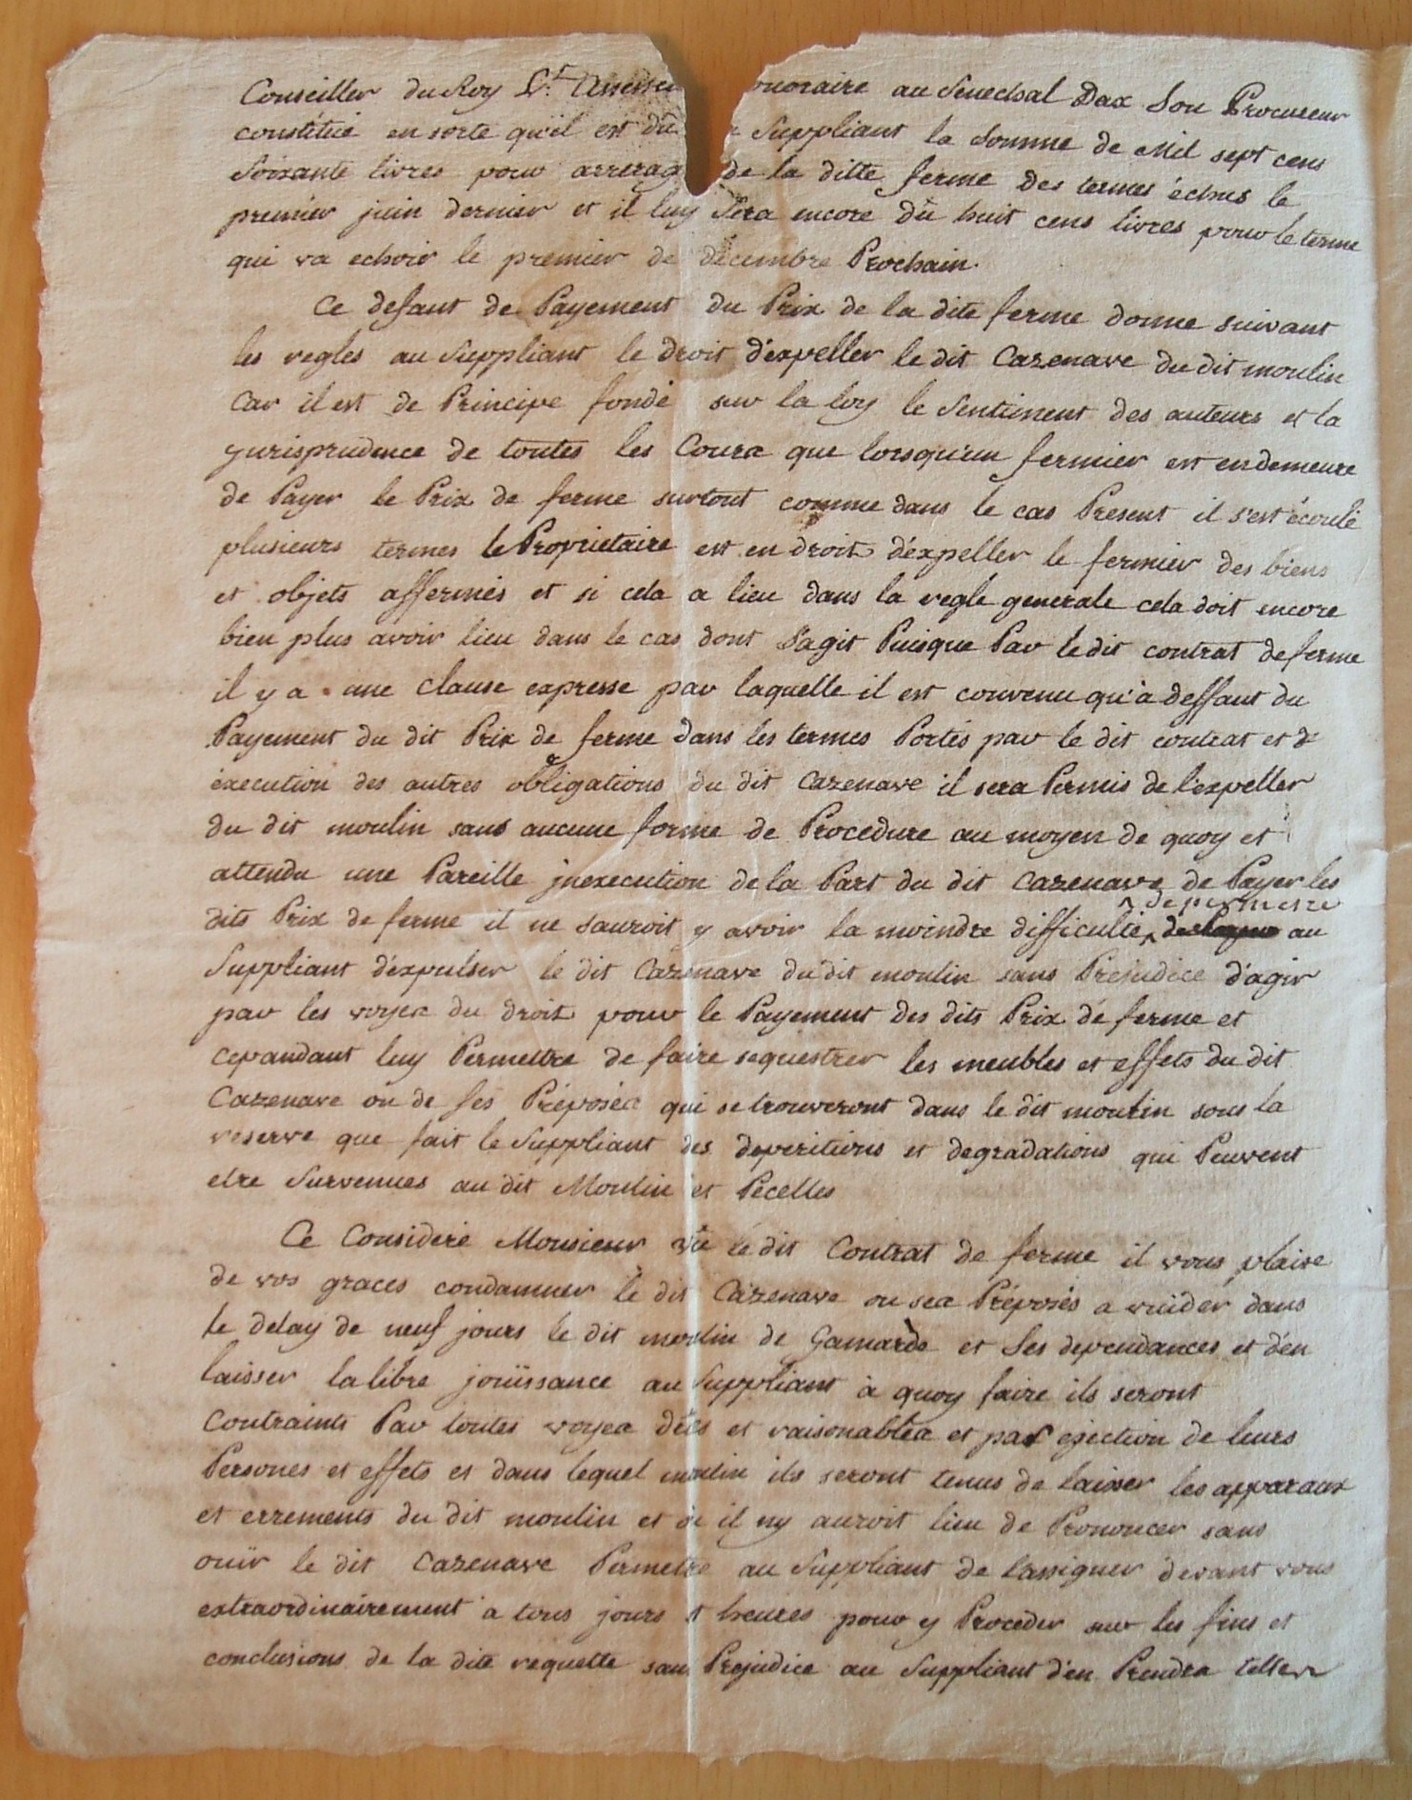 Conseiller du Roy Lt. Assesse onoraire au Senechal Dax Son Procureur
constitué en sorte qu'il est dû Suppliant la Somme de Mil sept cens
Soixante livres pour arrerag de la ditte ferme des termes échus le
premier juin dernier et il luy sera encore dû huit cens livres pour le terme
qui va echoir le premier de decembre Prochain.
Ce defaut de Payement du Prix de la dite ferme donne suivant
les regles au Suppliant le droit d'expeller le dit Cazenave du dit moulin
Car il est de Principe fondé sur la loy le Sentiment des auteurs et la
jurisprudence de toutes les Cours que lorsqu'un fermier est en demeure
de Payer le Prix de ferme surtout comme dans le cas Present il s'est écoulé
plusieurs termes le Proprietaire est en droit d'éxpeller le fermier des biens
et objets affermés et si cela a lieu dans la regle generale cela doit encore
bien plus avoir lieu dans le cas dont S'agit Puisque Par le dit contrat de ferme
il y a une Clause expresse par laquelle il est convenu qu'à deffaut du
Payement du dit Prix de ferme dans les termes Portés par le dit contrat et d'
éxecution des autres obligations du dit Cazenave il sera Permis de l'expeller
du dit moulin sans aucune forme de Procedure au moyen de quoy et
attendu une Pareille jnexecution de la Part du dit Cazenave de Payer les
dits Prix de ferme il ne sauroit y avoir la moindre difficulté de permetre au
Suppliant d'éxpulser le dit Cazenave du dit moulin sans Prejudice d'agir
par les voyes du droit pour le Payement des dits Prix de ferme et
cependant luy Permettre de faire sequestrer les meubles et effets du dit
Cazenave ou de ses Préposés qui se trouveront dans le dit moulin sous la
reserve que fait le Suppliant des deperitions et degradations qui Peuvent
etre Survenues au dit Moulin et Pecelles
Ce Consideré Monsieur vû le dit Contrat de ferme il vous plaise
de vos graces condamner le dit Cazenave ou ses Préposés a vuider dans
le delay de neuf jours le dit moulin de Gamarde et Ses dependances et d'en
laisser la libre jouïssance au Suppliant à quoy faire ils seront
Contraints Par toutes voyes dües et raisonables et par ejection de leurs
Persones et effets et dans lequel moulin ils seront tenus de laisser les apparaux
et errements du dit moulin et si il ny auroit lieu de Prononcer sans
ouïr le dit Cazenave Permetre au Suppliant de l'assigner devant vous
extraordinairement a tous jours et heures pour y Proceder sur les fins et
conclusions de la dite requette sans Prejudice au Suppliant d'en Prendre telles